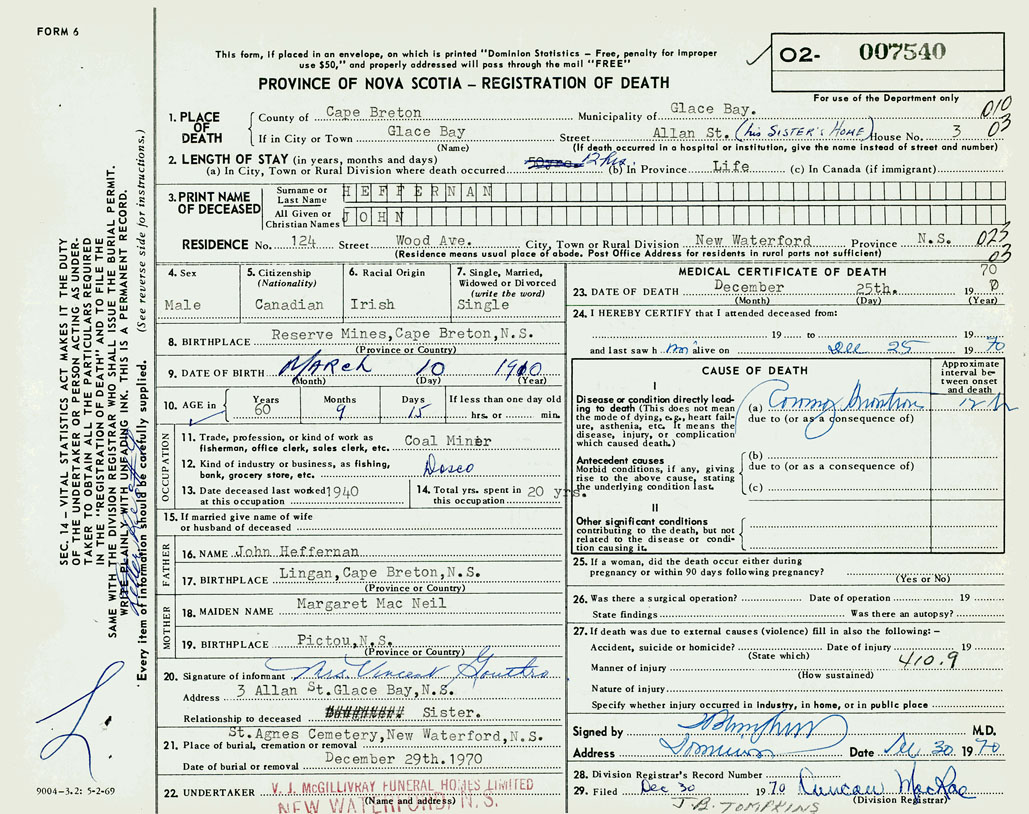 FORM 6
This form, if placed in an envelope, on which is printed "Dominion Statistics – Free, penalty for improper
use $50," and properly addressed will pass through the mail "FREE"
PROVINCE OF NOVA SCOTIA – REGISTRATION OF DEATH
02- 007540
For use of the Department only
010
03
1. PLACE OF DEATH
County of Cape Breton Municipality of Glace Bay.
If in City or Town Glace Bay Street Allan St. (his SISTER'S HOME) House No. 3
(Name) (If death occurred in a hospital or institution, give the name instead of street and number)
2. LENGTH OF STAY (in years, months and days)
(a) In City, Town or Rural Division where death occurred 12 hrs. (b) In Province Life (c) In Canada (if immigrant)
3. PRINT NAME OF DECEASED
Surname or Last Name HEFFERNAN
All Given or Christian Names JOHN
RESIDENCE No. 124 Street Wood Ave. City, Town or Rural Division New Waterford Province N.S. 023
(Residence means usual place of abode. Post Office Address for residents in rural parts not sufficient) 03
4. Sex
Male
5. Citizenship
(Nationality)
Canadian
6. Racial Origin
Irish
7. Single, Married,
Widowed or Divorced
(write the word)
Single
8. BIRTHPLACE Reserve Mines,Cape Breton,N.S.
(Province or Country)
9. DATE OF BIRTH MARCH 10 1910
(Month) (Day) (Year)
10. AGE in
Years Months Days If less than one day old
60 9 15 hrs. or min.
OCCUPATION
11. Trade, profession, or kind of work as
fisherman, office clerk, sales clerk, etc. Coal Miner
12. Kind of industry or business, as fishing,
bank, grocery store, etc. Dosco
13. Date deceased last worked 1940
at this occupation
14. Total yrs. spent in 20 yrs.
this occupation
15. If married give name of wife
or husband of deceased
FATHER
16. NAME John Heffernan
17. BIRTHPLACE Lingan,Cape Breton,N.S.
(Province or Country)
MOTHER
18. MAIDEN NAME Margaret Mac Neil
19. BIRTHPLACE Pictou,N.S.
(Province or Country)
20. Signature of informant Mrs. Vincent Gouthro
Address 3 Allan St.Glace Bay,N.S.
Relationship to deceased Sister.
St.Agnes Cemetery,New Waterford,N.S.
21. Place of burial, cremation or removal
Date of burial or removal December 29th.1970
22. UNDERTAKER V. J. McGILLIVRAY FUNERAL HOMES LIMITED
(Name and address)
NEW WATERFORD, N. S.
MEDICAL CERTIFICATE OF DEATH
70
23. DATE OF DEATH December 25th. 19
(Month) (Day) (Year)
24. I HEREBY CERTIFY that I attended deceased from:
19 to 19
and last saw h im alive on Dec 25 19 70
CAUSE OF DEATH
Approximate
interval be-
tween onset
and death
I
Disease or condition directly lead-
ing to death (This does not mean
the mode of dying, e.g., heart fail-
ure, asthenia, etc. It means the
disease, injury, or complication
which caused death.)
(a) 12 h
due to (or as a consequence of)
Antecedent causes
Morbid conditions, if any, giving
rise to the above cause, stating
the underlying condition last.
(b)
due to (or as a consequence of)
(c)
II
Other significant conditions
contributing to the death, but not
related to the disease or condi-
tion causing it.
25. If a woman, did the death occur either during
pregnancy or within 90 days following pregnancy?
(Yes or No)
26. Was there a surgical operation? Date of operation 19
State findings Was there an autopsy?
27. If death was due to external causes (violence) fill in also the following: –
Accident, suicide or homicide? Date of injury 19
(State which)
410.9
Manner of injury
(How sustained)
Nature of injury
Specify whether injury occurred in Industry, in home, or in public place
Signed by M.D.
Address Dominion Date Dec 30 1970
28. Division Registrar's Record Number
29. Filed Dec 30 1970 Duncan MacRae
(Division Registrar)
J.B. TOMPKINS
SEC. 14 – VITAL STATISTICS ACT MAKES IT THE DUTY
OF THE UNDERTAKER OR PERSON ACTING AS UNDER-
TAKER TO OBTAIN ALL THE PARTICULARS REQUIRED
IN THE "REGISTRATION OF DEATH" AND TO FILE THE
SAME WITH THE DIVISION REGISTRAR WHO SHALL ISSUE THE BURIAL PERMIT.
WRITE PLAINLY WITH UNFADING INK. THIS IS A PERMANENT RECORD.
Every item of information should be carefully supplied. (See reverse side for instructions.)
9004–3.2: 5-2-69